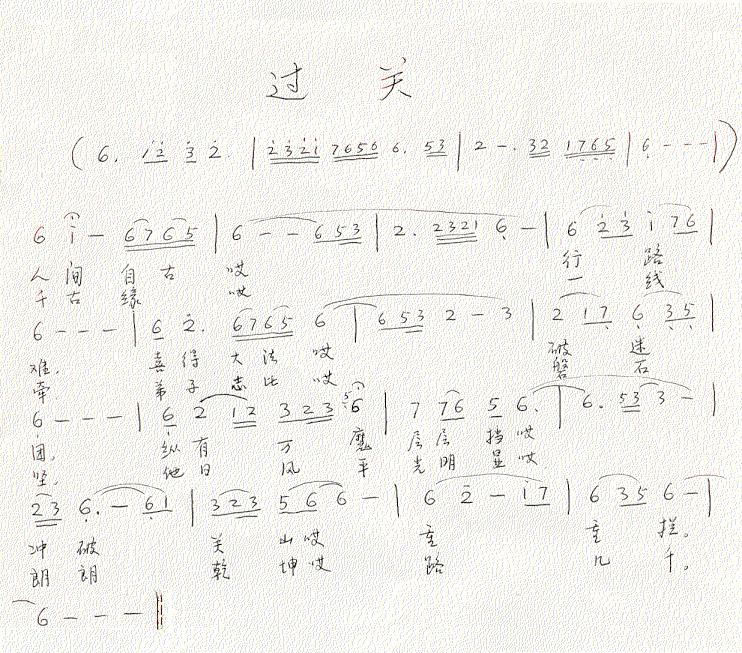 过 关
( 6. 1̇2̇ 3̇ 2̇. | 2̇3̇2̇1̇ 7656 6. 53 | 2 - . 32 1765 | 6 - - - | )
6 1̇ - 6765 | 6 - - 653 | 2. 2321 6 - | 6 2̇3̇ 1̇ 76 |
人 间 自 古 哎 行 路
千 古 缘 哎 一 线
6 - - - | 6 2̇. 6765 6 | 653 2 - 3 | 2 17 6 35 |
难. 喜 得 大 法 哎 破 迷
牵 弟 子 志 比 哎 磐 石
6 - - - | 6 2 12 323 56 | 7 76 5 6. | 6. 53 3 - |
团. 纵 有 万 魔 层 层 挡 哎
坚. 他 日 风 平 光 明 显 哎
23 6. - 61 | 323 5 6 6 - | 6 2̇ - 1̇7 | 6 35 6 - |
冲 破 关 山 哎 重 重 拦。
朗 朗 乾 坤 哎 路 几 千。
6 - - - ||